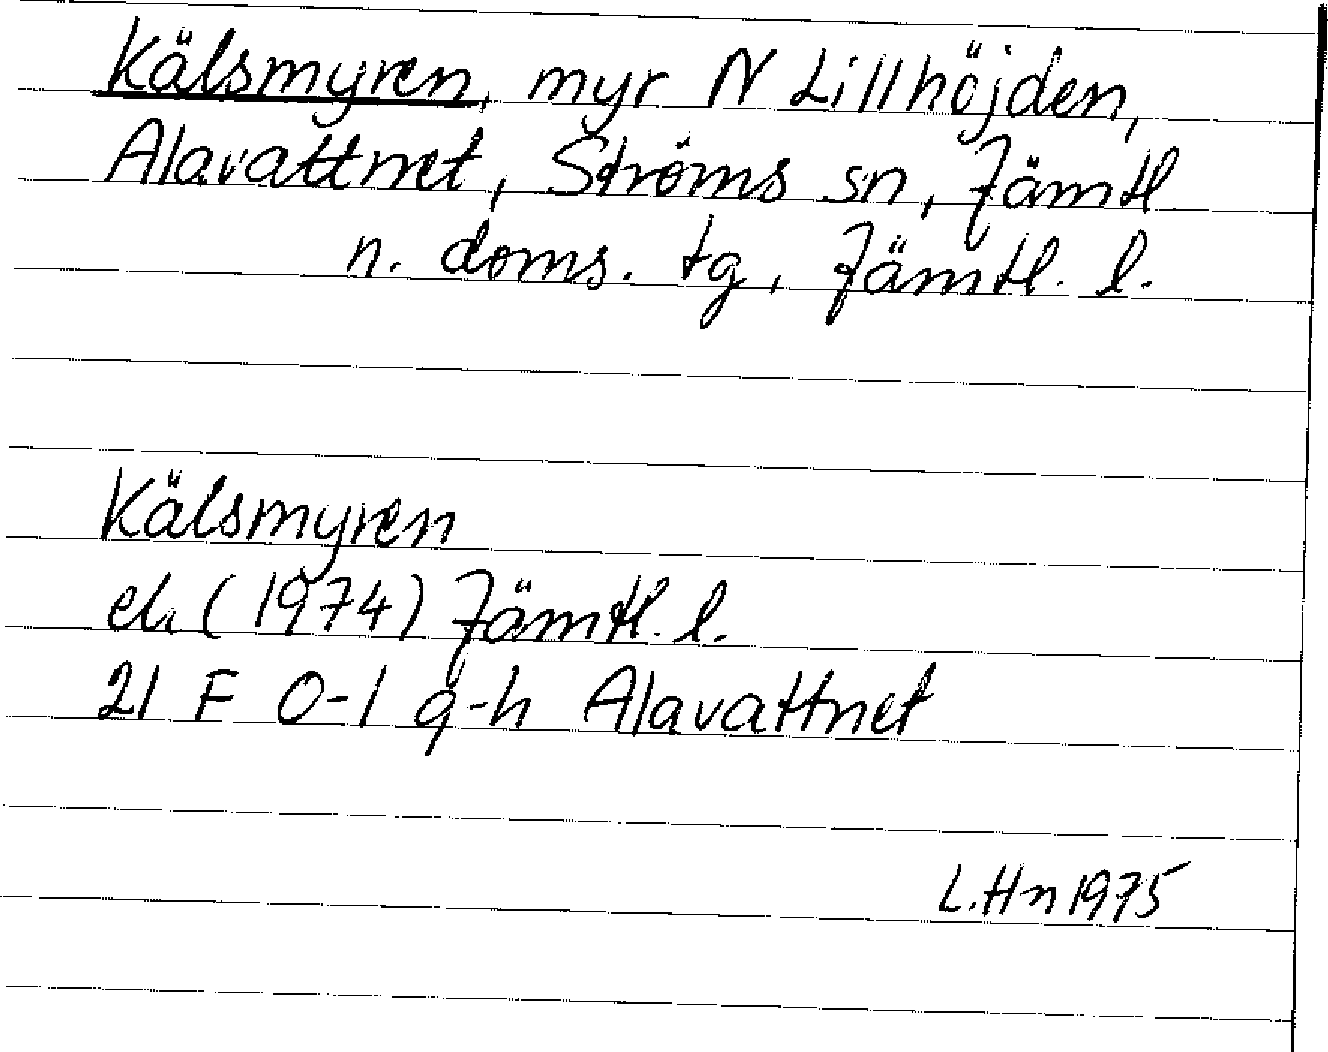 Kälsmyren, myr N Lillhöjden,
Alavattnet, Ströms sn, Jämtl
n. doms. tg, Jämtl. l.
Kälsmyren
ek (1974) Jämtl. l.
21 F 0-1 g-h Alavattnet
L. Hn 1975